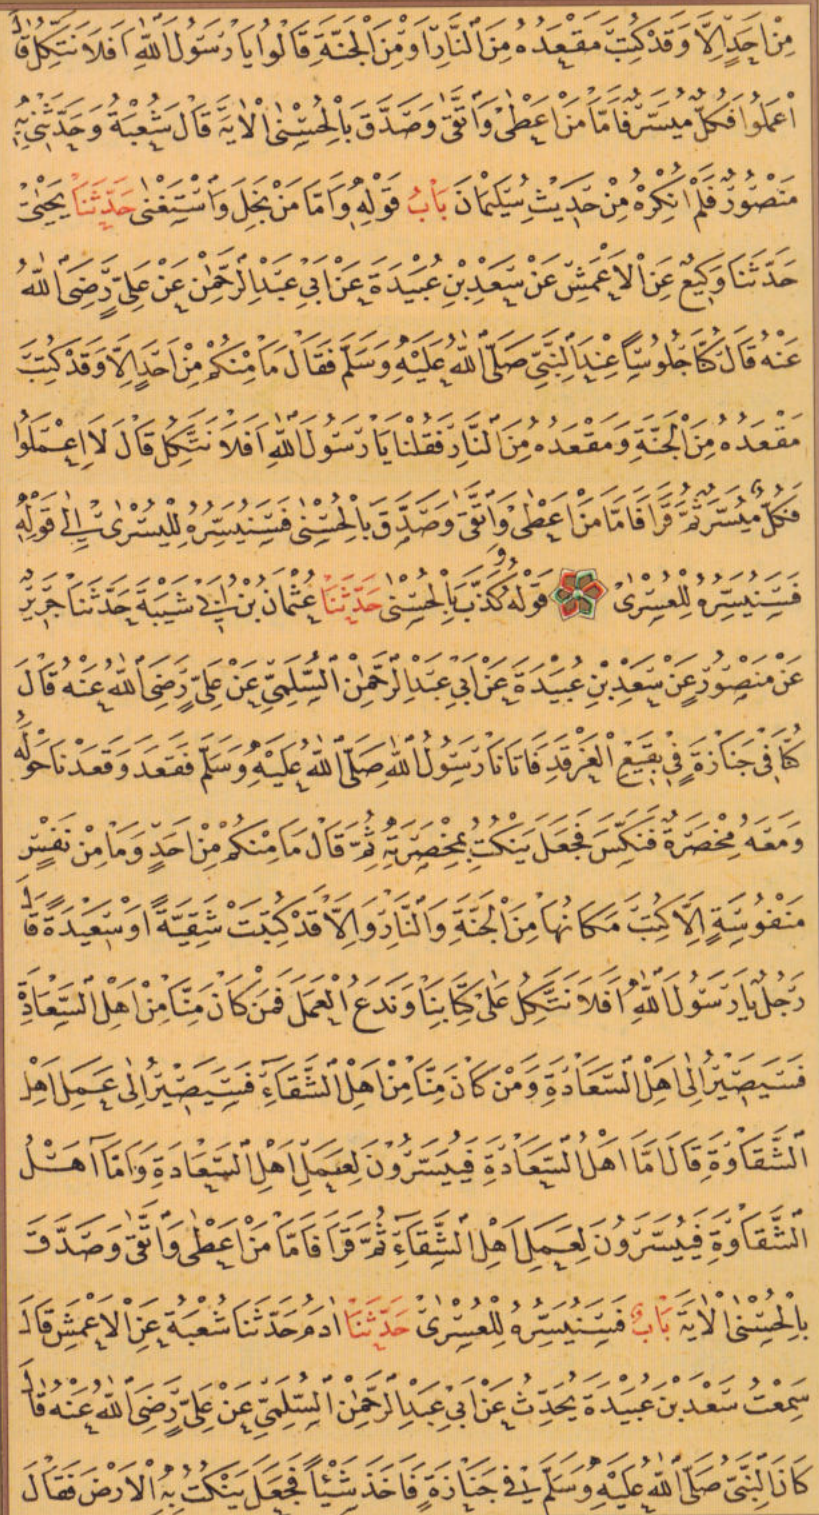 مِنْ اَحَدٍ اِلَّا وَقَدْ كُتِبَ مَقْعَدُهُ مِنَ النَّارِ اَوْ مِنَ الْجَنَّةِ قَالُوا يَا رَسُولَ اللّٰهِ اَفَلَا نَتَّكِلُ قَالَ
اعْمَلُوا فَكُلٌّ مُيَسَّرٌ فَاَمَّا مَنْ اَعْطٰى وَاتَّقٰى وَصَدَّقَ بِالْحُسْنٰى الْاٰيَةَ قَالَ شُعْبَةُ وَحَدَّثَنِي بِهِ
مَنْصُورٌ فَلَمْ اُنْكِرْهُ مِنْ حَدِيثِ سُلَيْمَانَ بَابُ قَوْلِهِ وَاَمَّا مَنْ بَخِلَ وَاسْتَغْنٰى حَدَّثَنَا يَحْيٰى
حَدَّثَنَا وَكِيعٌ عَنِ الْاَعْمَشِ عَنْ سَعْدِ بْنِ عُبَيْدَةَ عَنْ اَبِي عَبْدِ الرَّحْمٰنِ عَنْ عَلِيٍّ رَضِيَ اللّٰهُ
عَنْهُ قَالَ كُنَّا جُلُوسًا عِنْدَ النَّبِيِّ صَلَّى اللّٰهُ عَلَيْهِ وَسَلَّمَ فَقَالَ مَا مِنْكُمْ مِنْ اَحَدٍ اِلَّا وَقَدْ كُتِبَ
مَقْعَدُهُ مِنَ الْجَنَّةِ وَمَقْعَدُهُ مِنَ النَّارِ فَقُلْنَا يَا رَسُولَ اللّٰهِ اَفَلَا نَتَّكِلُ قَالَ لَا اِعْمَلُوا
فَكُلٌّ مُيَسَّرٌ ثُمَّ قَرَاَ فَاَمَّا مَنْ اَعْطٰى وَاتَّقٰى وَصَدَّقَ بِالْحُسْنٰى فَسَنُيَسِّرُهُ لِلْيُسْرٰى اِلٰى قَوْلِهِ
فَسَنُيَسِّرُهُ لِلْعُسْرٰى قَوْلُهُ وَكَذَّبَ بِالْحُسْنٰى حَدَّثَنَا عُثْمَانُ بْنُ اَبِي شَيْبَةَ حَدَّثَنَا جَرِيرٌ
عَنْ مَنْصُورٍ عَنْ سَعْدِ بْنِ عُبَيْدَةَ عَنْ اَبِي عَبْدِ الرَّحْمٰنِ السُّلَمِيِّ عَنْ عَلِيٍّ رَضِيَ اللّٰهُ عَنْهُ قَالَ
كُنَّا فِي جَنَازَةٍ فِي بَقِيعِ الْغَرْقَدِ فَاَتَانَا رَسُولُ اللّٰهِ صَلَّى اللّٰهُ عَلَيْهِ وَسَلَّمَ فَقَعَدَ وَقَعَدْنَا حَوْلَهُ
وَمَعَهُ مِخْصَرَةٌ فَنَكَّسَ فَجَعَلَ يَنْكُتُ بِمِخْصَرَتِهِ ثُمَّ قَالَ مَا مِنْكُمْ مِنْ اَحَدٍ وَمَا مِنْ نَفْسٍ
مَنْفُوسَةٍ اِلَّا كُتِبَ مَكَانُهَا مِنَ الْجَنَّةِ وَالنَّارِ وَاِلَّا قَدْ كُتِبَتْ شَقِيَّةً اَوْ سَعِيدَةً قَالَ
رَجُلٌ يَا رَسُولَ اللّٰهِ اَفَلَا نَتَّكِلُ عَلٰى كِتَابِنَا وَنَدَعُ الْعَمَلَ فَمَنْ كَانَ مِنَّا مِنْ اَهْلِ السَّعَادَةِ
فَسَيَصِيرُ اِلٰى اَهْلِ السَّعَادَةِ وَمَنْ كَانَ مِنَّا مِنْ اَهْلِ الشَّقَاءِ فَسَيَصِيرُ اِلٰى عَمَلِ اَهْلِ
الشَّقَاوَةِ قَالَ اَمَّا اَهْلُ السَّعَادَةِ فَيُيَسَّرُونَ لِعَمَلِ اَهْلِ السَّعَادَةِ وَاَمَّا اَهْلُ
الشَّقَاوَةِ فَيُيَسَّرُونَ لِعَمَلِ اَهْلِ الشَّقَاءِ ثُمَّ قَرَاَ فَاَمَّا مَنْ اَعْطٰى وَاتَّقٰى وَصَدَّقَ
بِالْحُسْنٰى الْاٰيَةَ بَابٌ فَسَنُيَسِّرُهُ لِلْعُسْرٰى حَدَّثَنَا اٰدَمُ حَدَّثَنَا شُعْبَةُ عَنِ الْاَعْمَشِ قَالَ
سَمِعْتُ سَعْدَ بْنَ عُبَيْدَةَ يُحَدِّثُ عَنْ اَبِي عَبْدِ الرَّحْمٰنِ السُّلَمِيِّ عَنْ عَلِيٍّ رَضِيَ اللّٰهُ عَنْهُ قَالَ
كَانَ النَّبِيُّ صَلَّى اللّٰهُ عَلَيْهِ وَسَلَّمَ فِي جَنَازَةٍ فَاَخَذَ شَيْئًا فَجَعَلَ يَنْكُتُ بِهِ الْاَرْضَ فَقَالَ